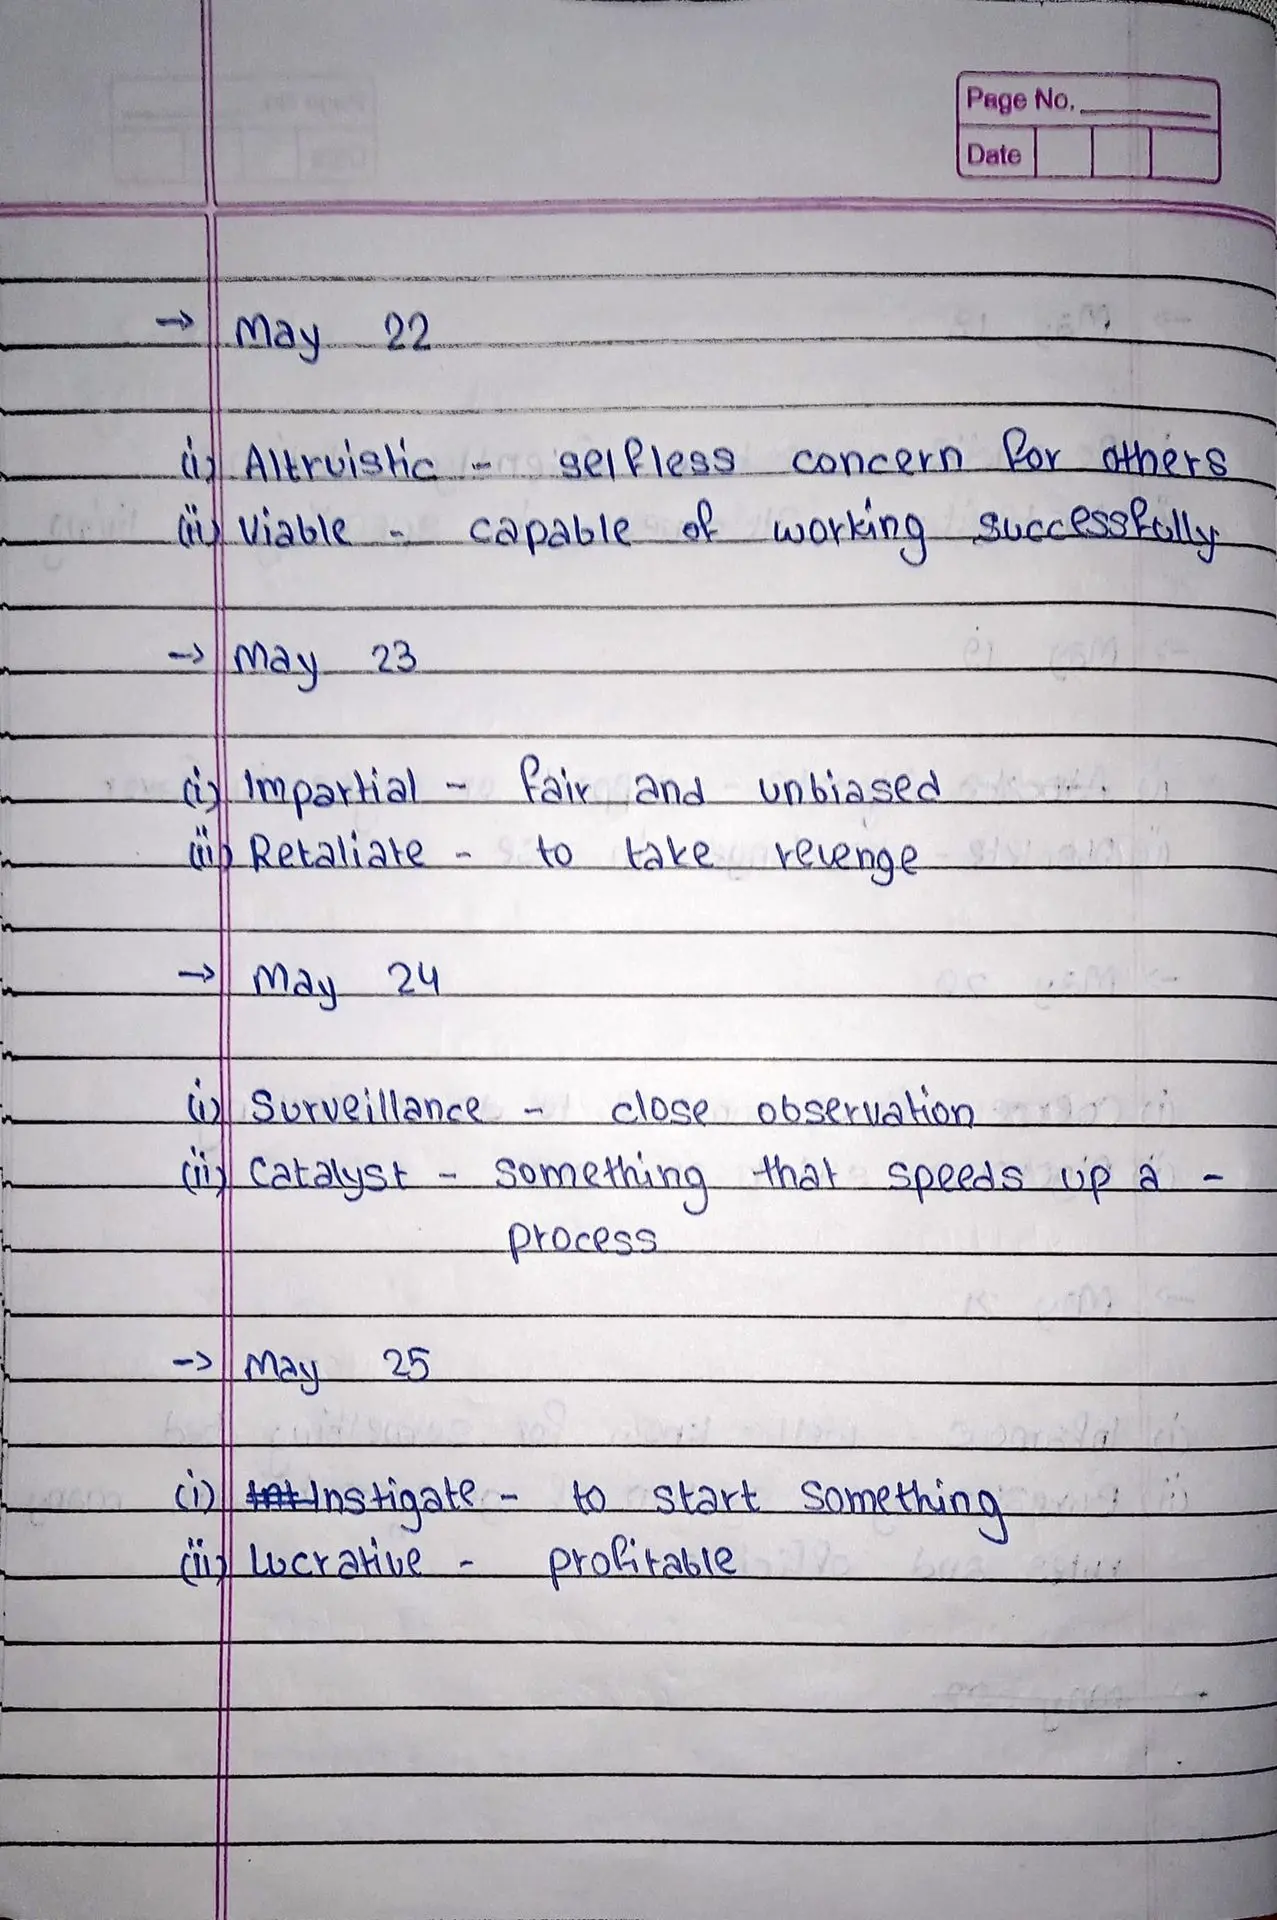 Page No.
Date
→ May 22
(i) Altruistic - selfless concern for others
(ii) Viable - capable of working successfully
→ May 23
(i) Impartial - fair and unbiased
(ii) Retaliate - to take revenge
→ May 24
(i) Surveillance - close observation
(ii) Catalyst - something that speeds up a -
process
→ May 25
(i) Instigate - to start something
(ii) Lucrative - profitable